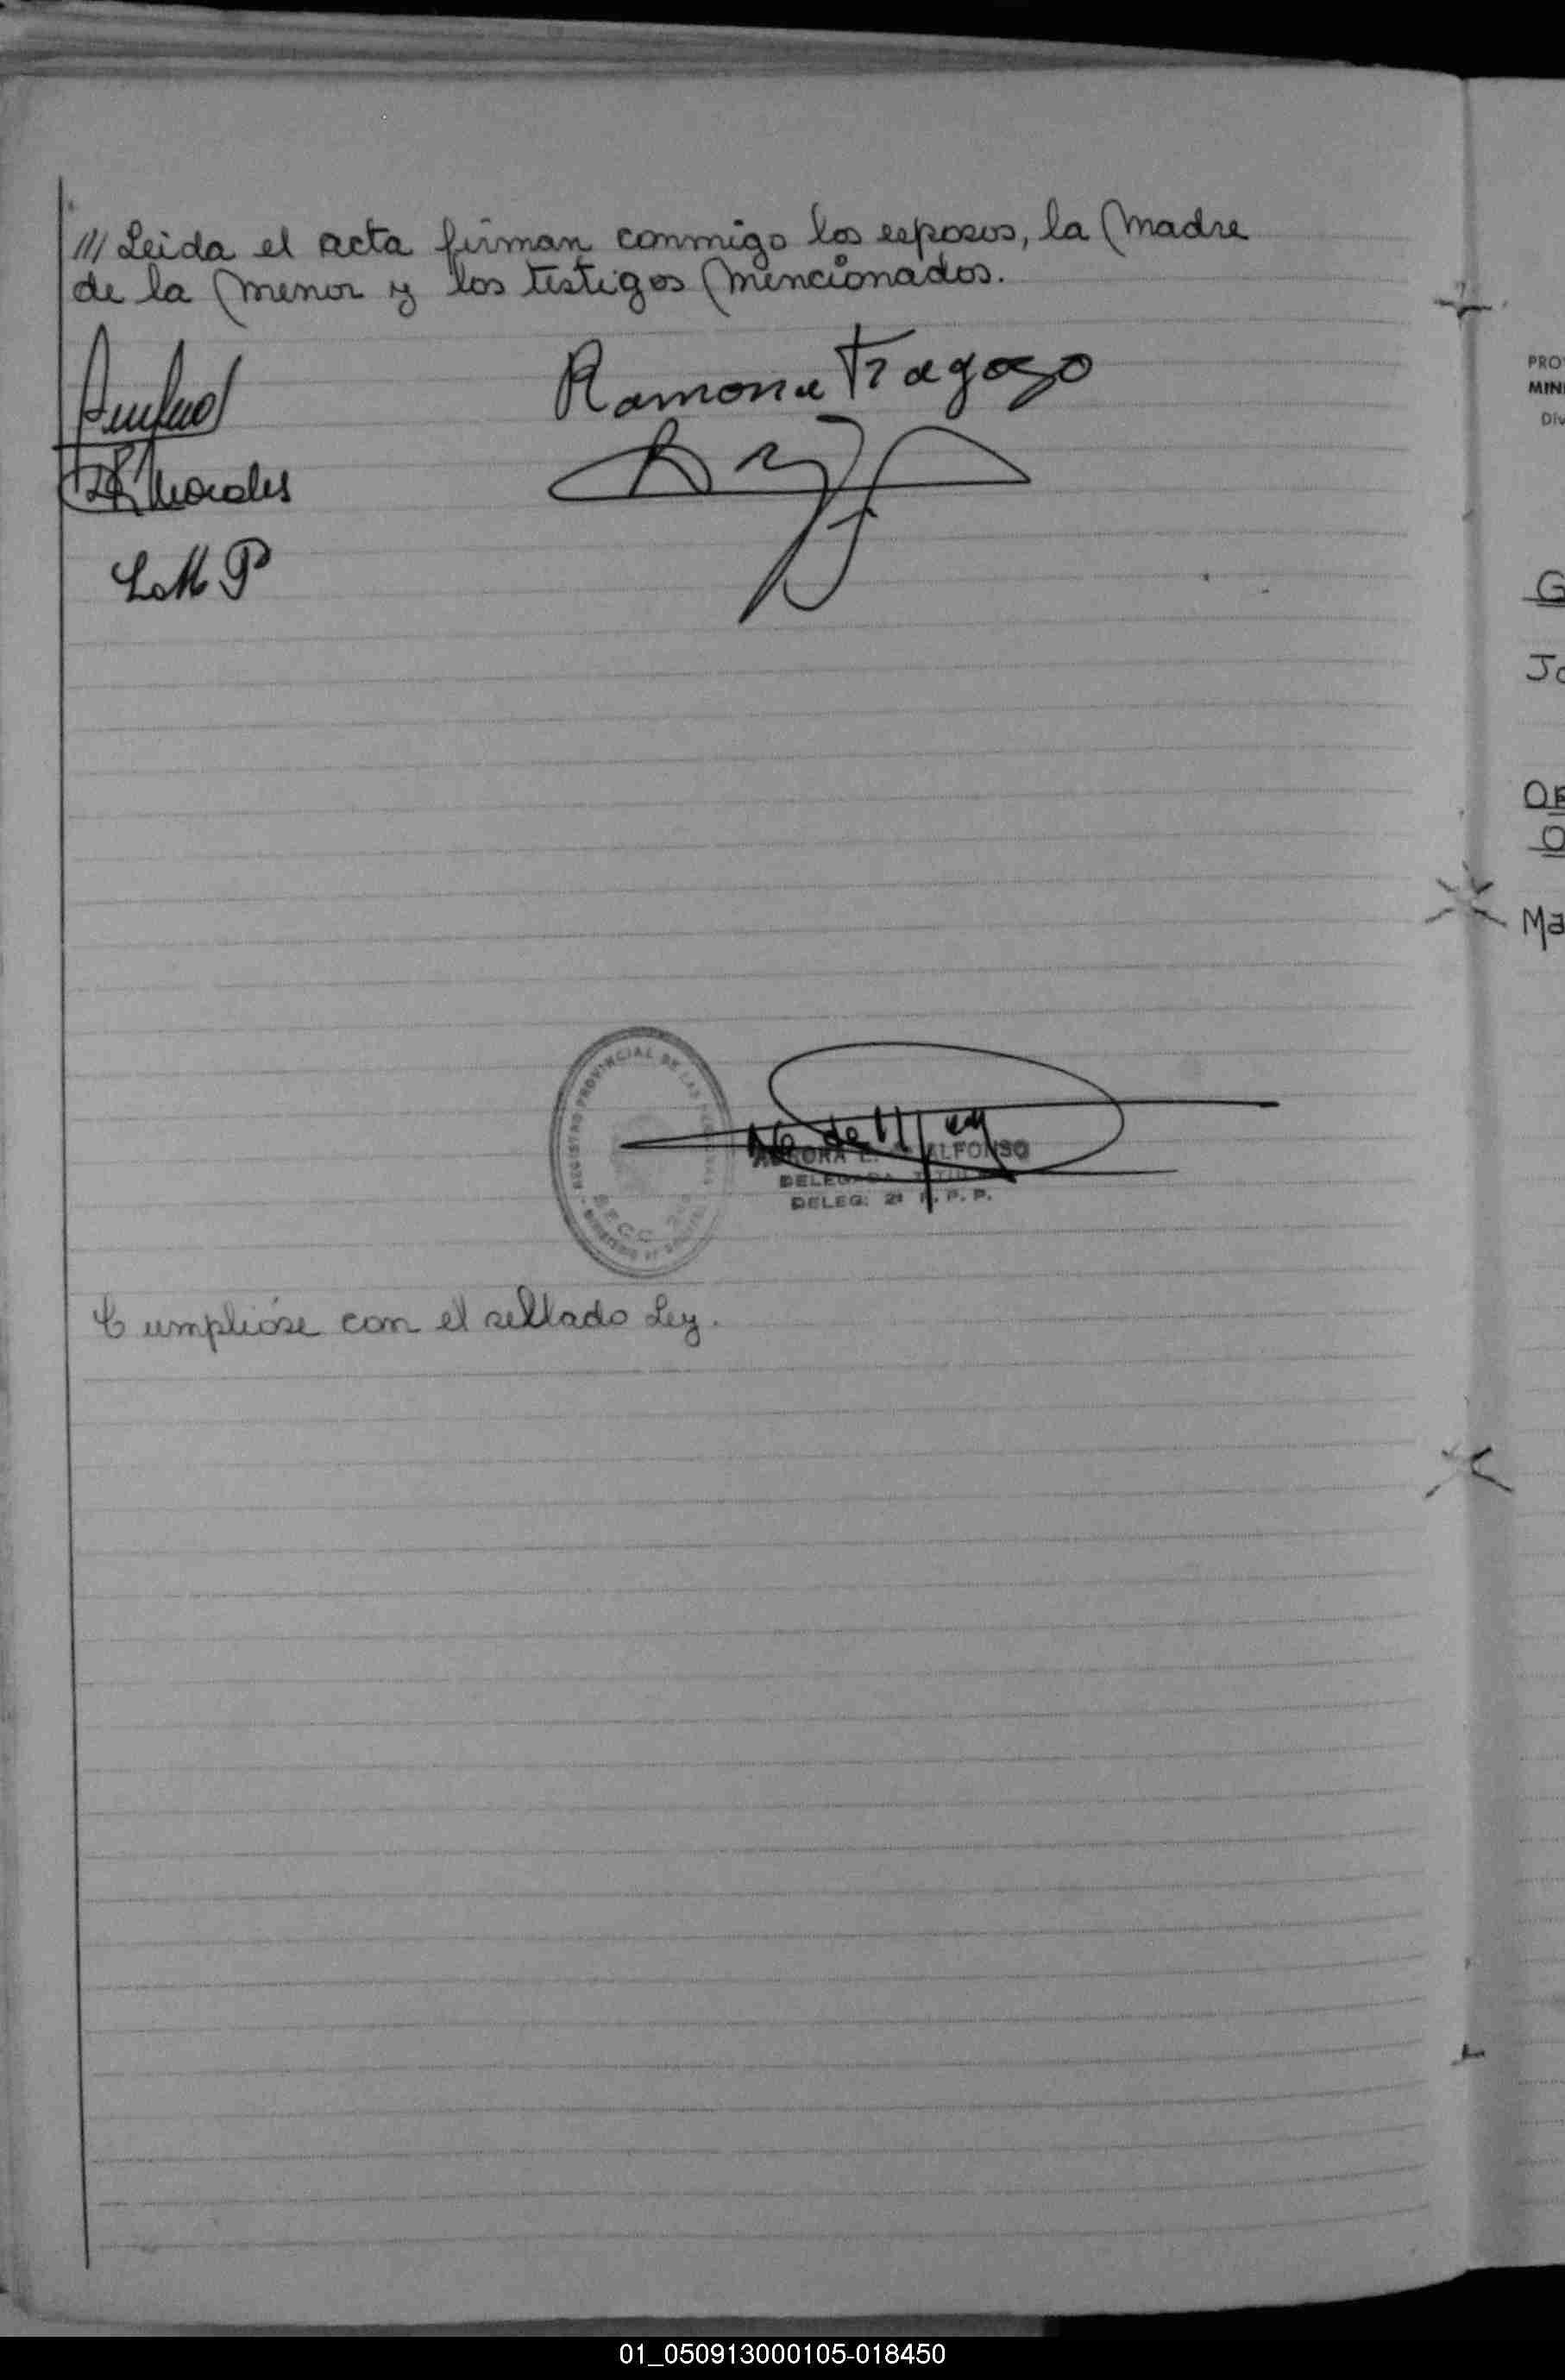 /// Leida el acta firman conmigo los esposos, la Madre
de la Menor y los testigos Mencionados.
Ramona Fragozo
Morales
L.M.P
REGISTRO PROVINCIAL DE LAS PERSONAS
ALFONSO
DELEG: 2ª R. P. P.
Cumplióse con el sellado Ley.
PRO
MIN
Div
G
Jo
OF
O
Ma
01_050913000105-018450